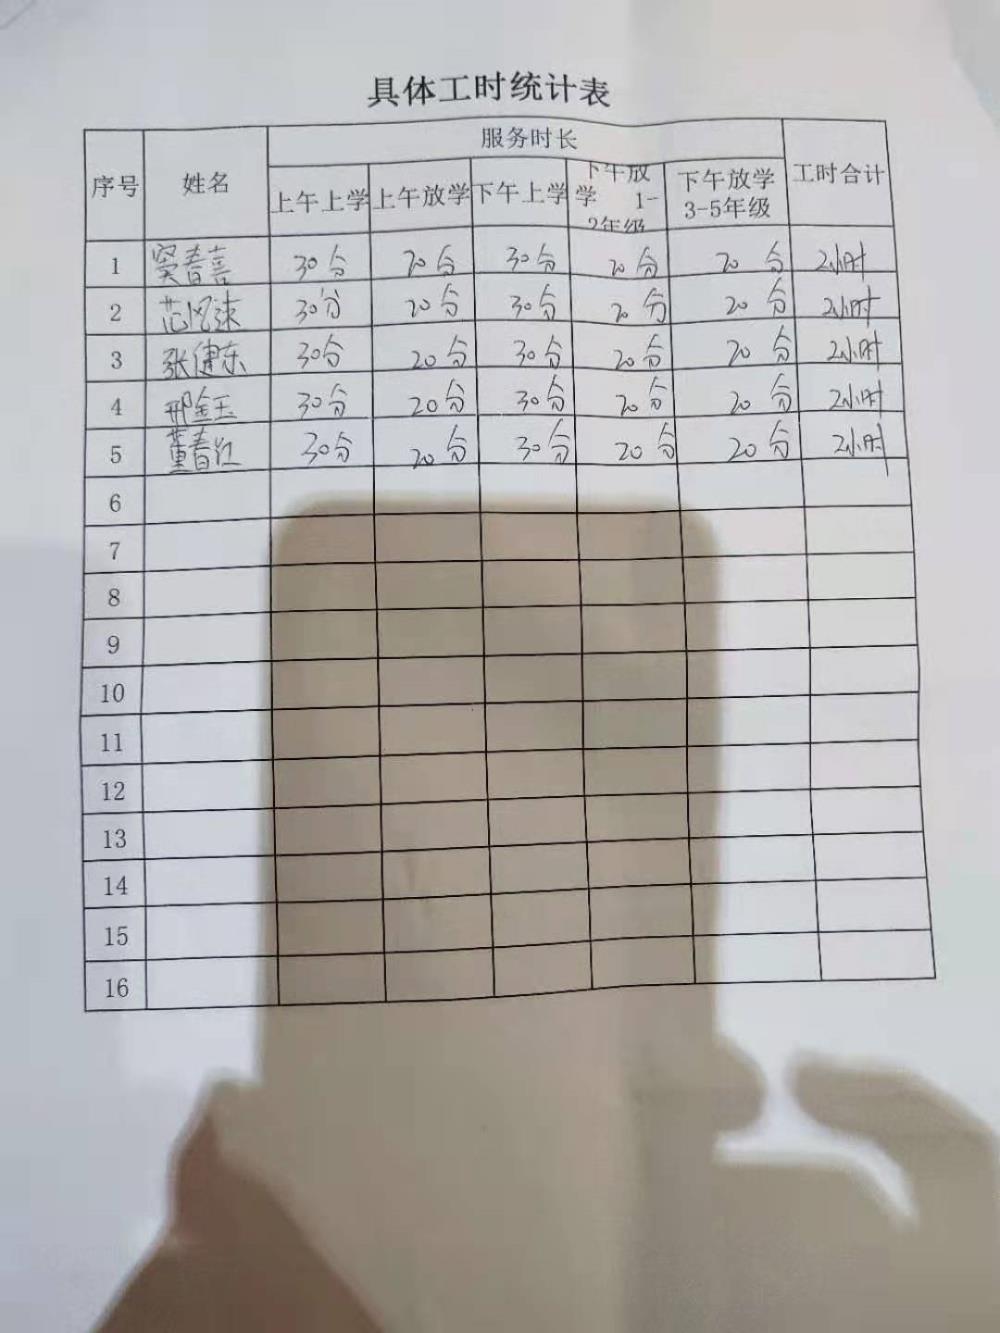 具体工时统计表
序号 姓名 服务时长 工时合计
上午上学 上午放学 下午上学 下午放学 1-2年级 下午放学 3-5年级
1 窦春喜 30分 20分 30分 20分 20分 2小时
2 范风速 30分 20分 30分 20分 20分 2小时
3 张健东 30分 20分 30分 20分 20分 2小时
4 邢金玉 30分 20分 30分 20分 20分 2小时
5 董春江 30分 20分 30分 20分 20分 2小时
6
7
8
9
10
11
12
13
14
15
16